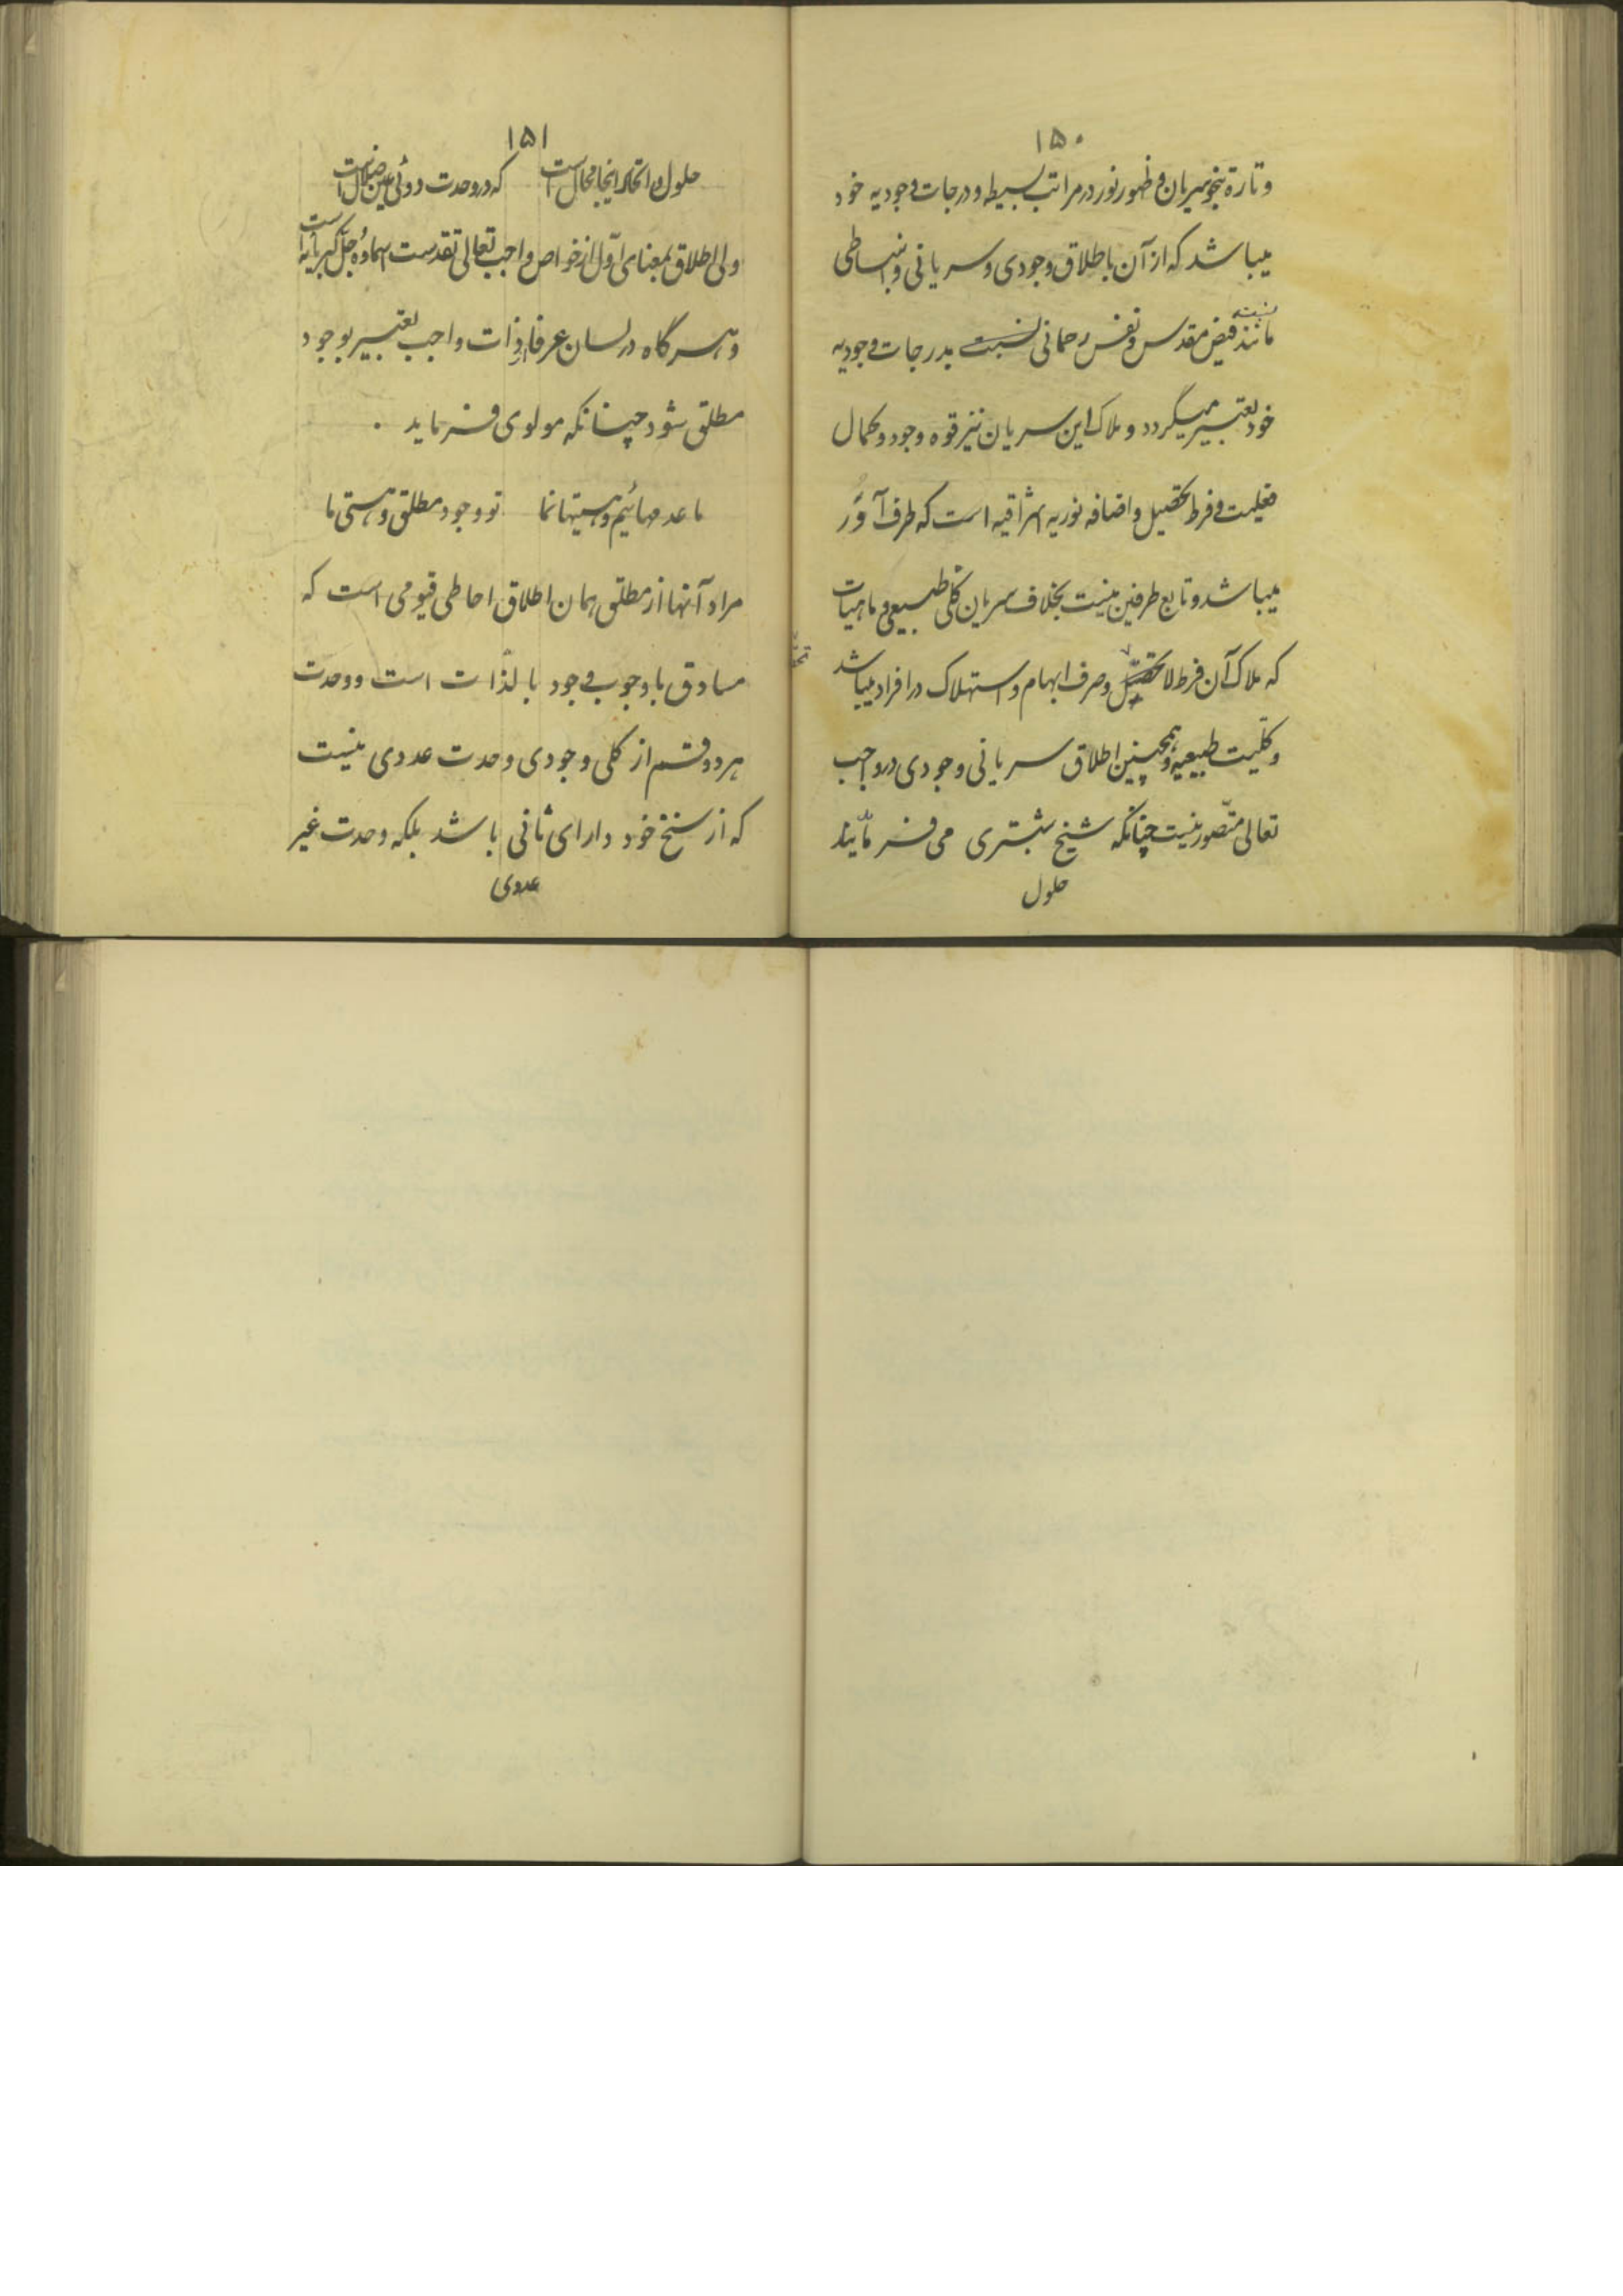 ۱۵۰
و تارة بنحو سریان و ظهور نور در مراتب بسیطه و درجات وجودیه خود
میباشد که از آن باطلاق وجودی و سریانی و انبساطی
مانند فیض مقدس و نفس رحمانی نسبت بدرجات وجودیه
نسبت
خود تعبیر میگردد و ملاک این سریان نیز قوه وجود و کمال
فعلیت و فرط تحصیل و اضافه نوریه اشراقیه است که طرف آور
میباشد و تابع طرفین نیست بخلاف سریان کلی طبیعی و ماهیات
که ملاک آن فرط لا تحصیل و صرف ابهام و استهلاک در افراد میباشد
و کلیت طبیعیه و همچنین اطلاق سریانی وجودی در واجب
تعالی متصور نیست چنانکه شیخ شبستری می فرمایند
حلول
۱۵۱
حلول و اتحاد اینجا محال است که در وحدت دوئی عین ضلال است
ولی اطلاق بمعنای اول از خواص واجب تعالی تقدست اسماؤه و جل کبریائه است
و هر گاه در لسان عرفا از ذات واجب تعبیر بوجود
مطلق شود چنانکه مولوی فرماید .
ما عدمهائیم و هستیها نما تو وجود مطلق و هستی ما
مراد آنها از مطلق همان اطلاق احاطی قیومی است که
مساوق با وجوب وجود بالذات است و وحدت
هر دو قسم از کلی وجودی وحدت عددی نیست
که از سنخ خود دارای ثانی باشد بلکه وحدت غیر
عددی